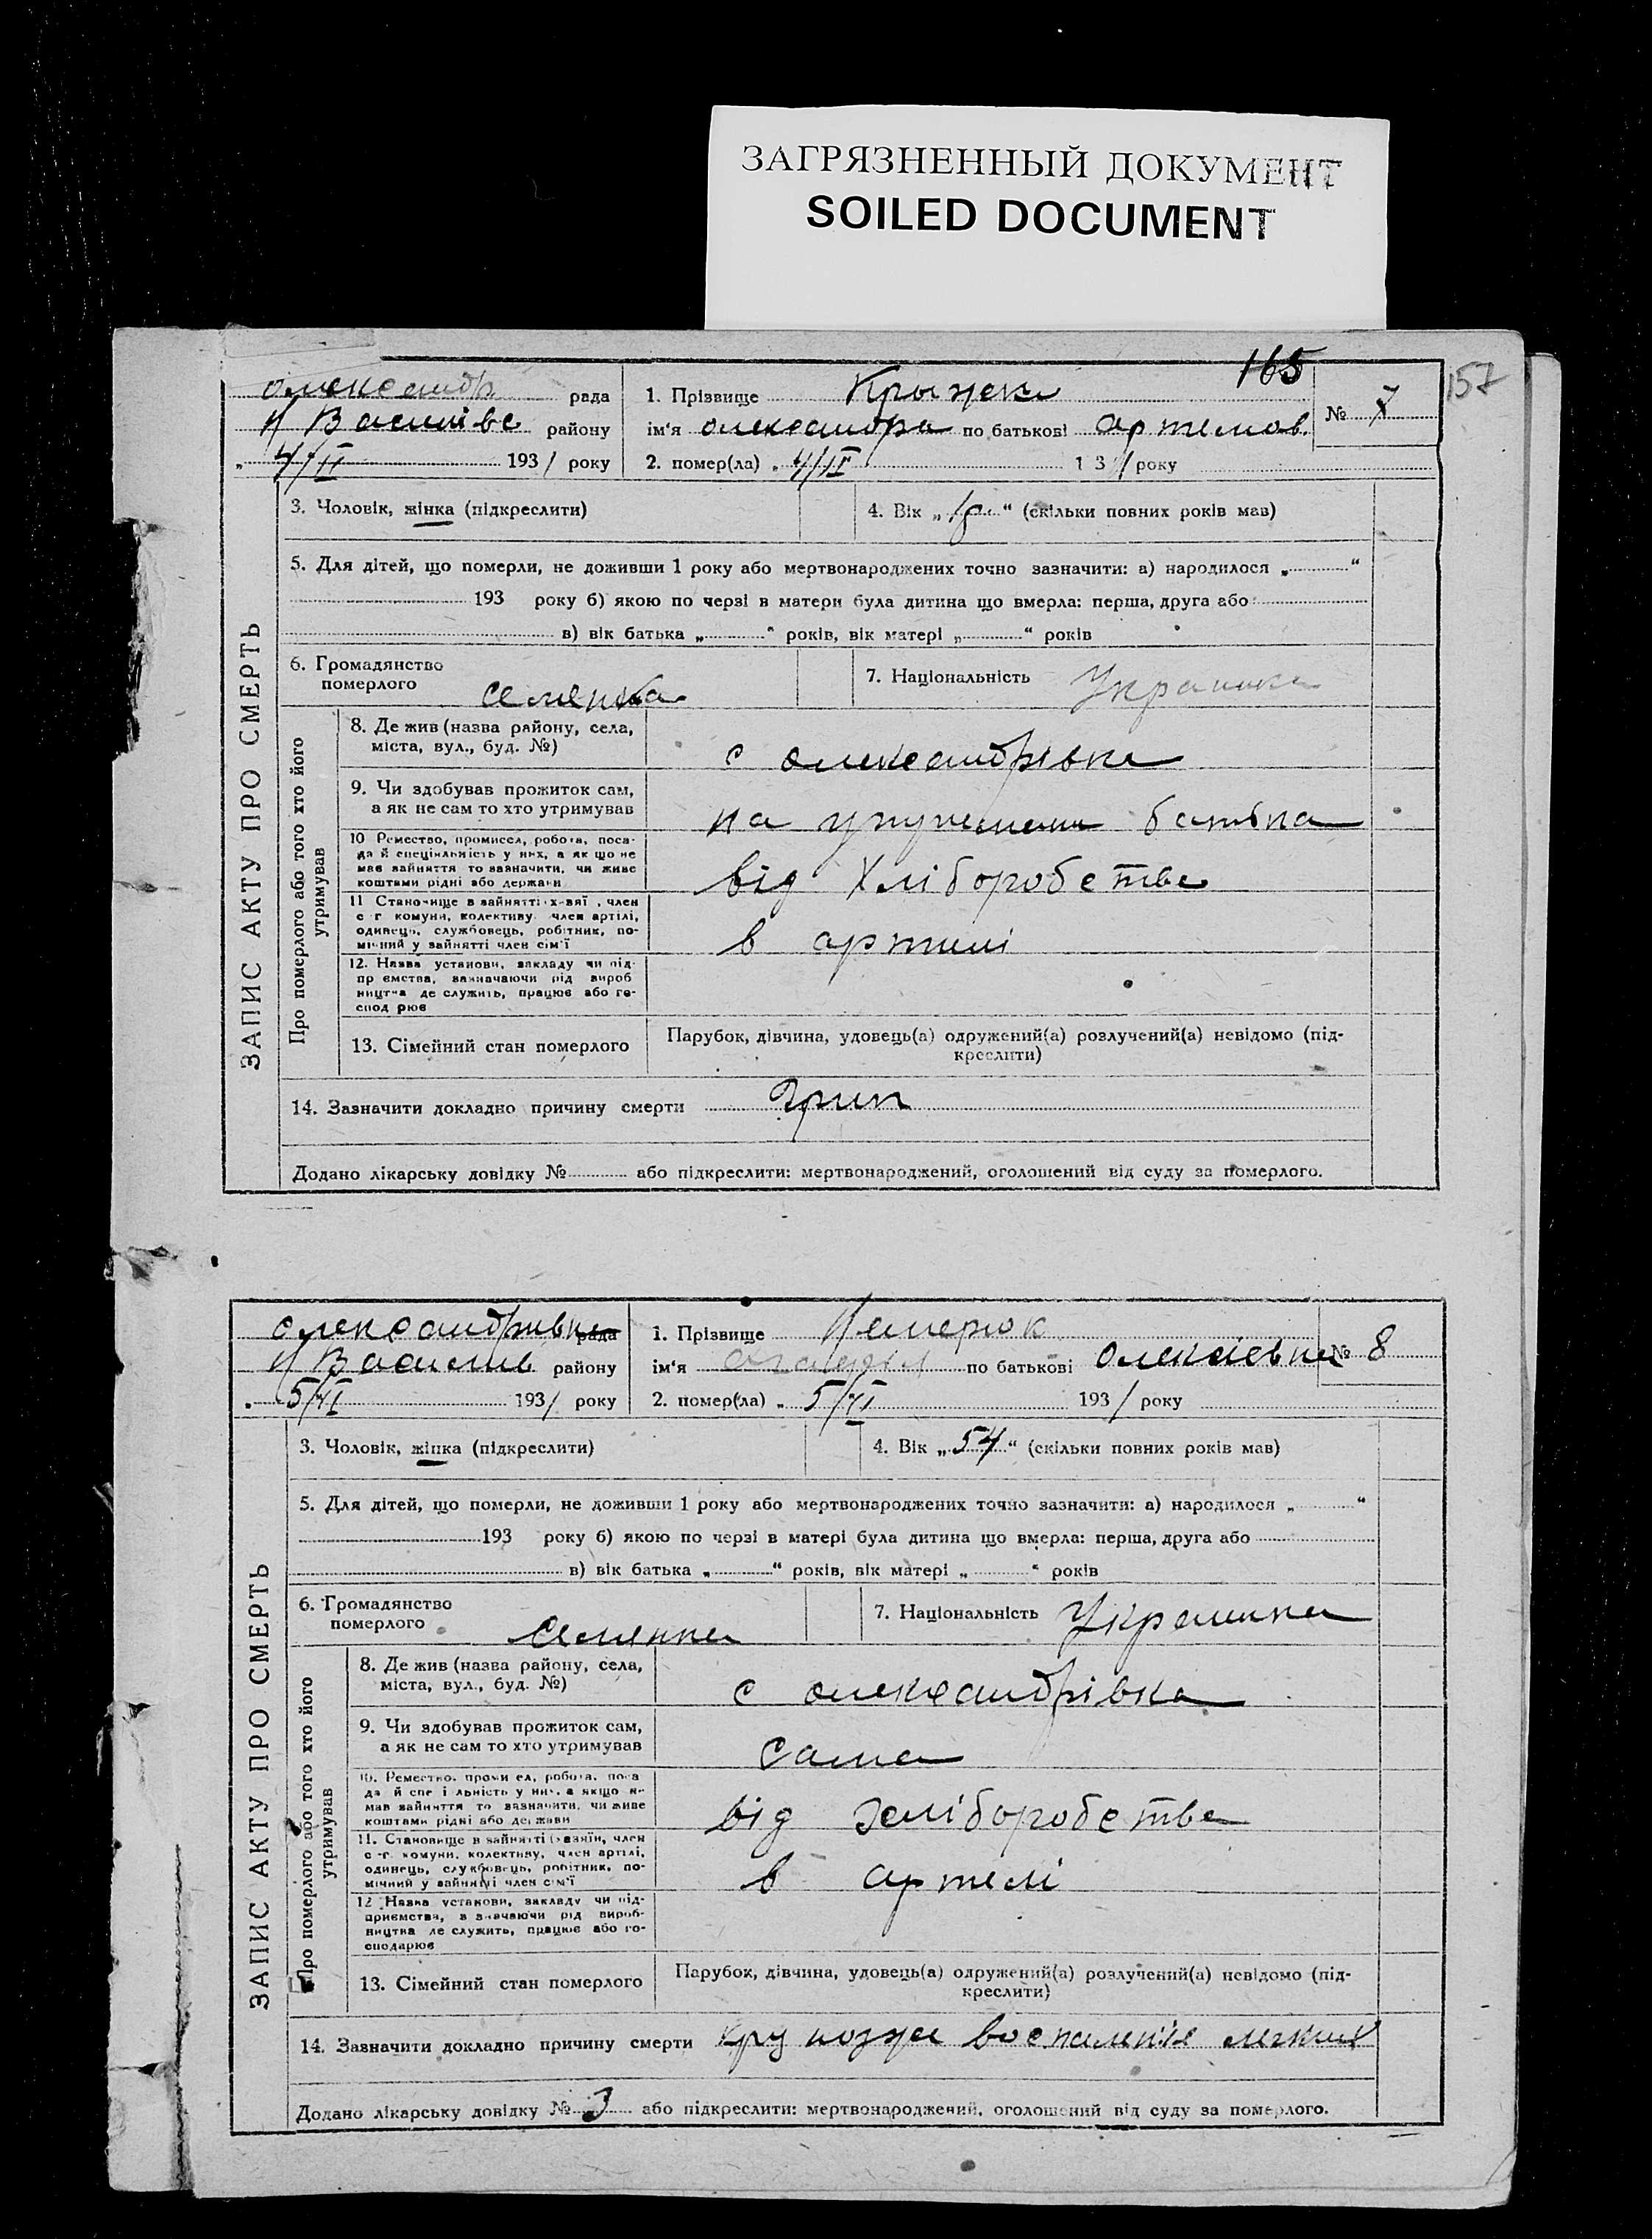 ЗАГРЯЗНЕННЫЙ ДОКУМЕНТ
SOILED DOCUMENT
165
157
Олександр рада
Н Василівс району
„ 4/II 1931 року
1. Прізвище
ім'я Олександра по батькові Артемов.
№ 7
2. помер(ла) „ 4/II 1931 року
3. Чоловік, жінка (підкреслити)
4. Вік „18“ (скільки повних років мав)
5. Для дітей, що померли, не доживши 1 року або мертвонароджених точно зазначити: а) народилося „ “
193 року б) якою по черзі в матери була дитина що вмерла: перша, друга або
в) вік батька „ “ років, вік матері „ “ років
6. Громадянство
померлого
селянка
7. Національність Украинка
ЗАПИС АКТУ ПРО СМЕРТЬ
Про померлого або того хто його
утримував
8. Де жив (назва району, села,
міста, вул., буд. №)
с Олександрівка
9. Чи здобував прожиток сам,
а як не сам то хто утримував
на батька
10 Ремество, промисел, робота, поса-
да й спеціяльність у них, а як що не
мав зайняття то зазначити, чи живе
коштами рідні або держави
від Хліборобства
11 Становище в зайнятті: х-зяї , член
с г комуни, колективу член артілі,
одинець, службовець, робітник, по-
мічний у зайнятті член сім'ї
в артилі
12. Назва установи, закладу чи під-
пр ємства, зазначаючи рід вироб
ництва де служить, працює або го-
спод рює
13. Сімейний стан померлого
Парубок, дівчина, удовець(а) одружений(а) розлучений(а) невідомо (під-
креслити)
14. Зазначити докладно причину смерти Грип
Додано лікарську довідку № або підкреслити: мертвонароджений, оголошений від суду за померлого.
Олександривка рада
Н Василив району
„ 5/II 1931 року
1. Прізвище
ім'я по батькові Олексіевна
№ 8
2. помер(ла) „ 5/II 1931 року
3. Чоловік, жінка (підкреслити)
4. Вік „54“ (скільки повних років мав)
5. Для дітей, що померли, не доживши 1 року або мертвонароджених точно зазначити: а) народилося „ “
193 року б) якою по черзі в матері була дитина що вмерла: перша, друга або
в) вік батька „ “ років, вік матері „ “ років
6. Громадянство
померлого
Селянка
7. Національність Украинка
ЗАПИС АКТУ ПРО СМЕРТЬ
Про померлого або того хто його
утримував
8. Де жив (назва району, села,
міста, вул., буд. №)
с Олександрівка
9. Чи здобував прожиток сам,
а як не сам то хто утримував
Сама
10. Ремество, промисел, робота, поса
да й спеціяльність у них, а якщо не
мав зайняття то зазначити, чи живе
коштами рідні або держави
від хліборобства
11. Становище в зайнятті (хазяїн, член
с-г комуни, колективу, член артілі,
одинець, службовець, робітник, по-
мічний у зайнятті член сім'ї
в артелі
12 Назва установи, закладу чи під-
приємства, зазначаючи рід вироб-
ництва де служить, працює або го-
сподарює
13. Сімейний стан померлого
Парубок, дівчина, удовець(а) одружений(а) розлучений(а) невідомо (під-
креслити)
14. Зазначити докладно причину смерти воспаленіє легких
Додано лікарську довідку № 3 або підкреслити: мертвонароджений, оголошений від суду за померлого.